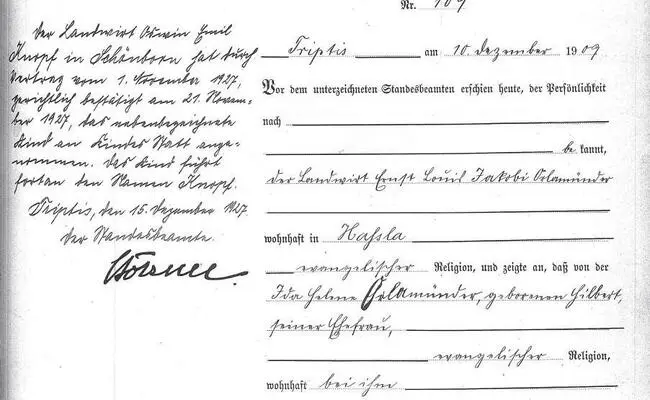 Nr. 109
Der Landwirt Oswin Emil
Knopf in Schönborn hat durch
Vertrag vom 1. November 1927,
gerichtlich bestätigt am 21. Novem-
ber 1927, das nebenbezeichnete
Kind an Kindes Statt ange-
nommen. Das Kind führt
fortan den Namen Knopf.
Triptis, den 15. Dezember 1927.
Der Standesbeamte.
Triptis am 10. Dezember 1909
Vor dem unterzeichneten Standesbeamten erschien heute, der Persönlichkeit
nach
be kannt,
der Landwirt Ernst Louis Jakobi Orlamünder
wohnhaft in Hassla
evangelischer Religion, und zeigte an, daß von der
Ida Helene Orlamünder, geborenen Hilbert,
seiner Ehefrau,
evangelischer Religion,
wohnhaft bei ihm